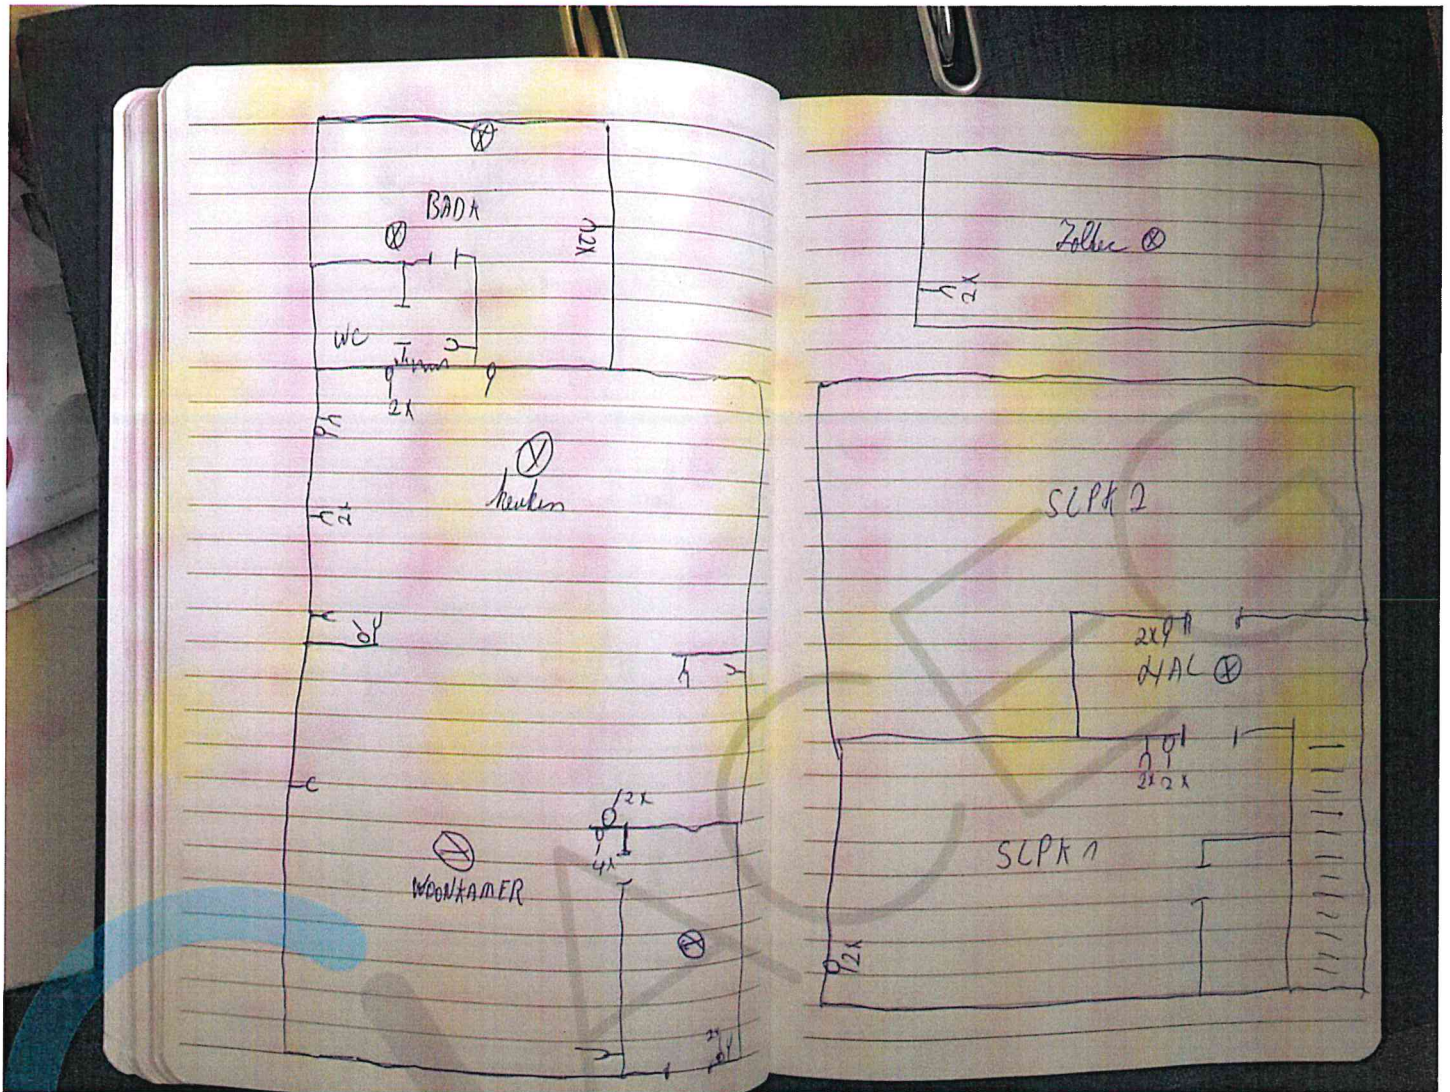 BADK
2X
WC
2X
keuken
2X
2X
4X
WOONKAMER
2X
Zolder
2X
SLPK 2
2X
HAL
2X 2X
SLPK 1
2X
ACEG